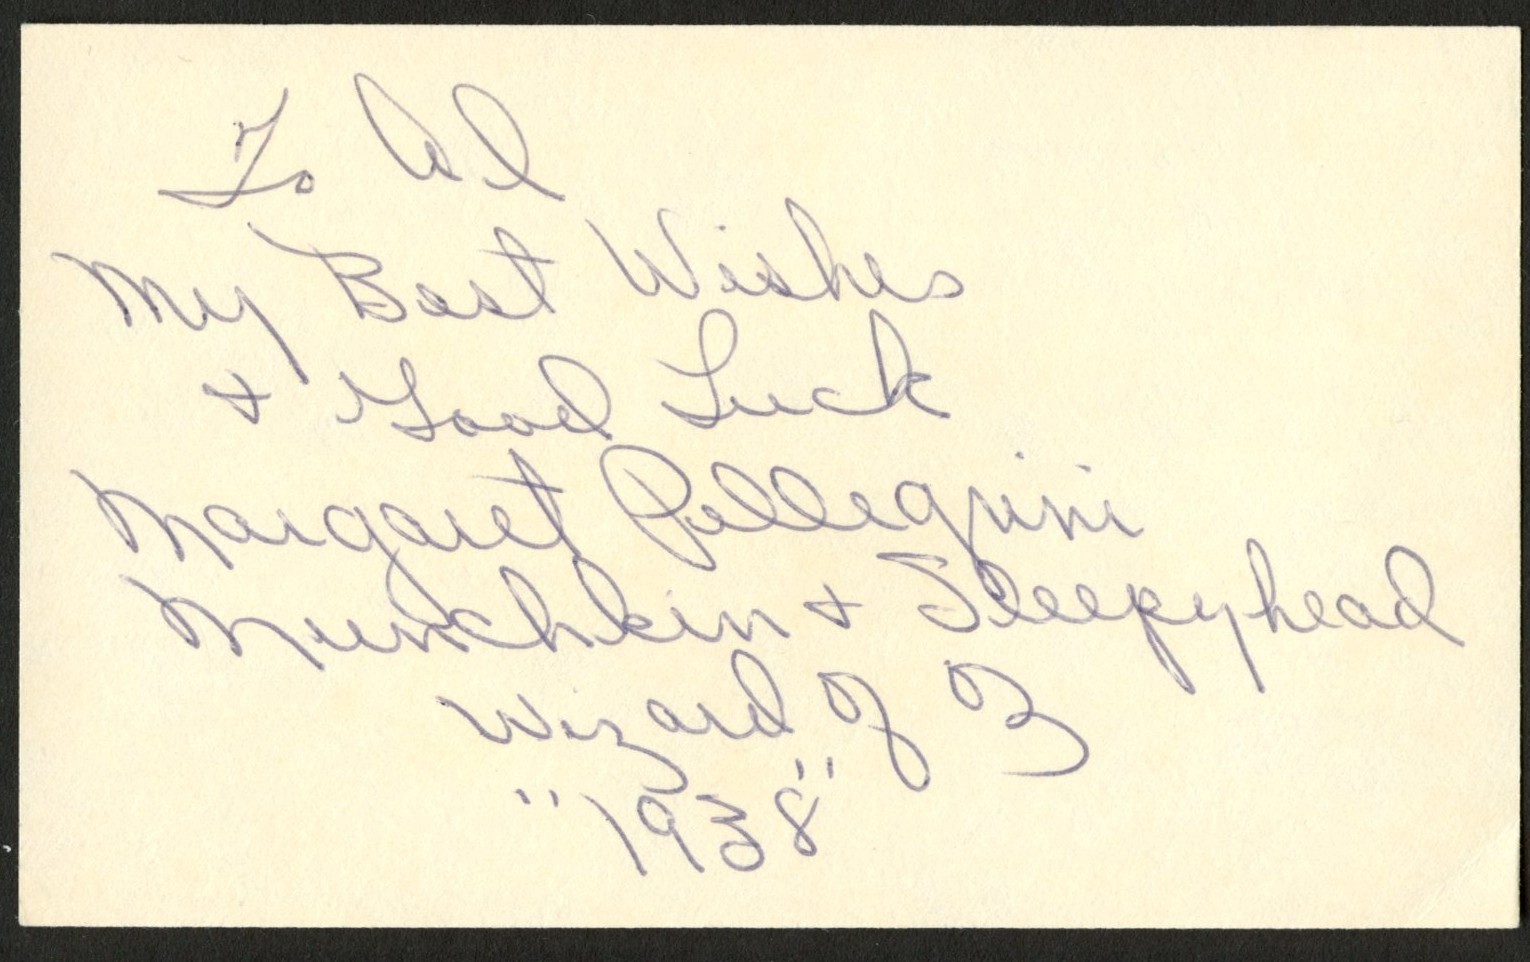 To Al
My Best Wishes
+ Good Luck
Margaret Pellegrini
Munchkin + Sleepyhead
Wizard of Oz
"1938"